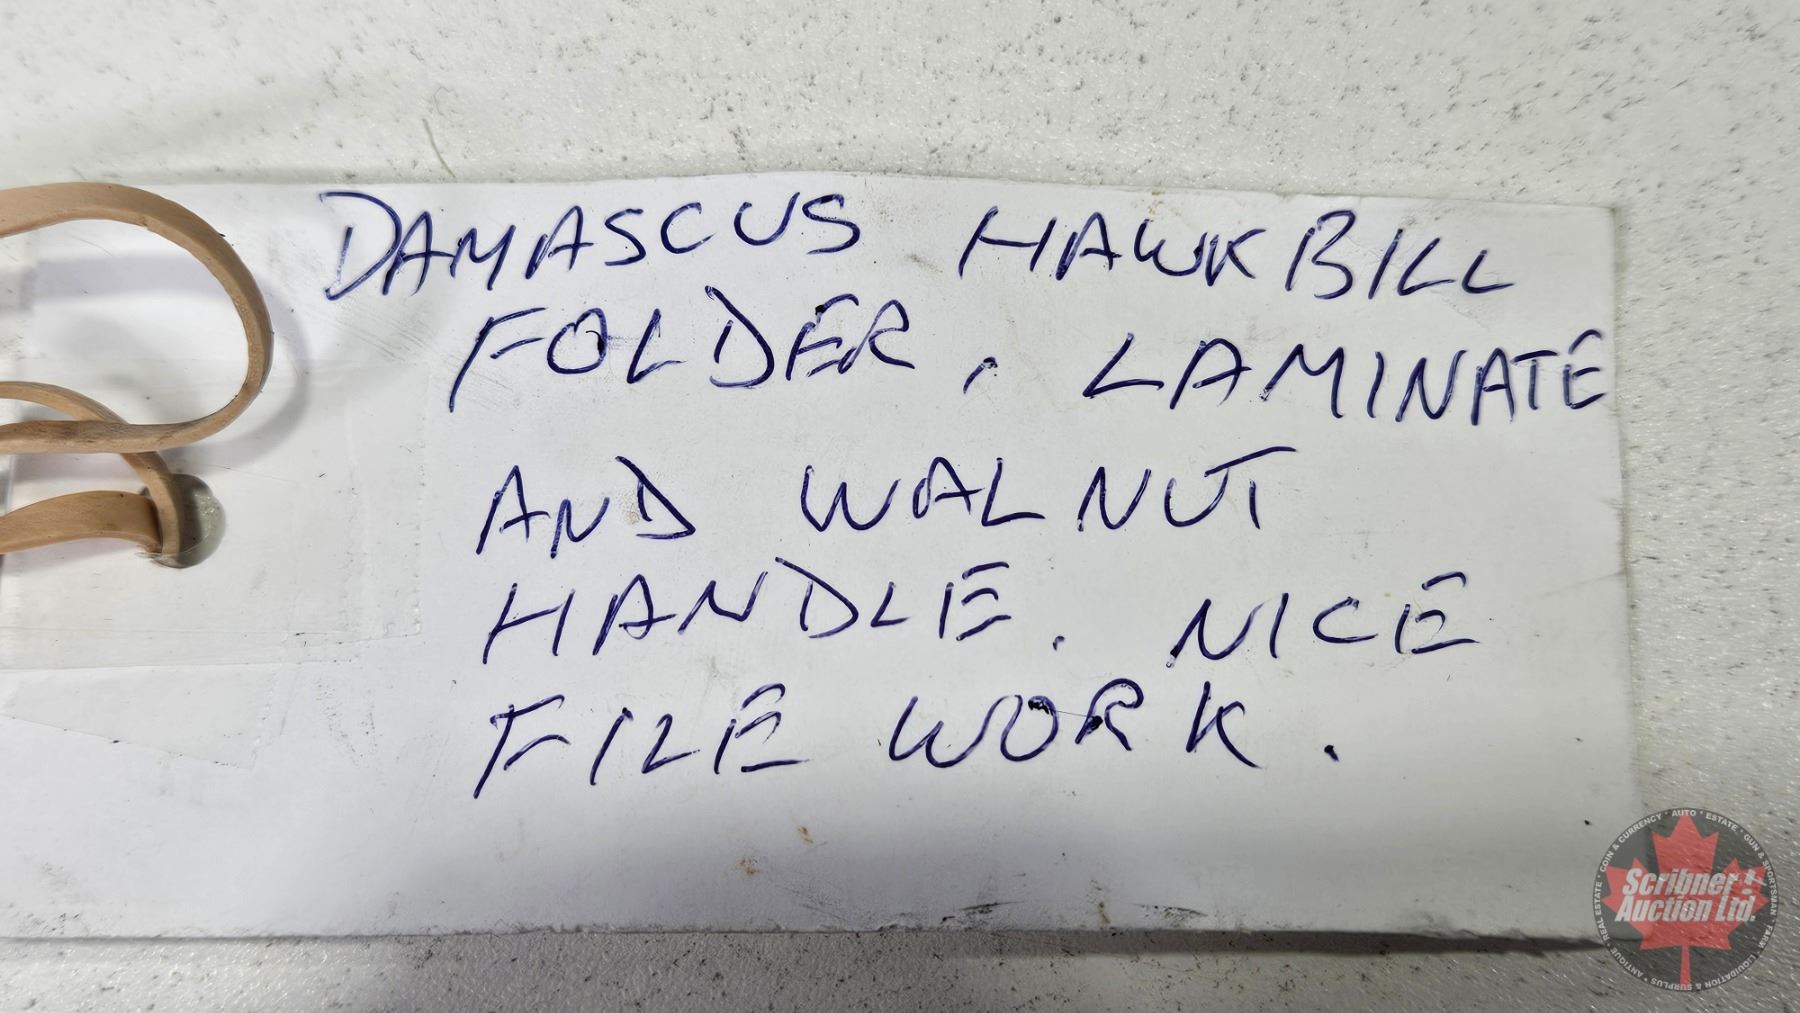 DAMASCUS HAWKBILL
FOLDER. LAMINATE
AND WALNUT
HANDLE. NICE
FILE WORK.
Scribner!
Auction Ltd.
COIN & CURRENCY * AUTO * ESTATE * GUN & SPORTSMAN * FARM * LIQUIDATION & SURPLUS * ANTIQUE * REAL ESTATE *